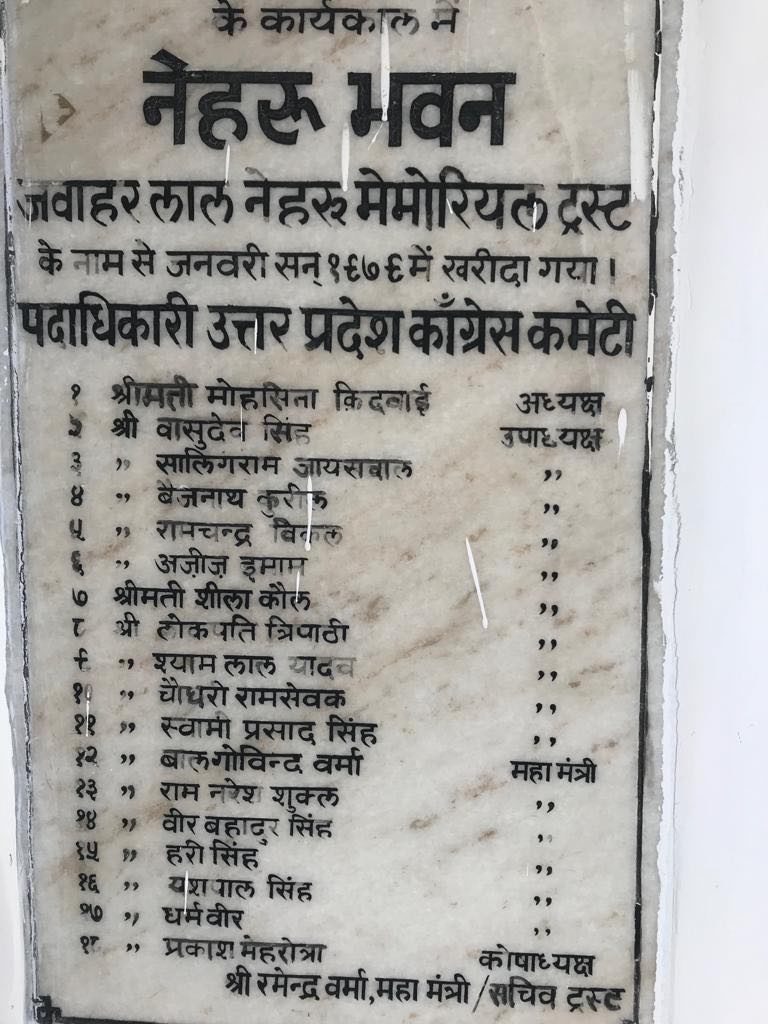 के कार्यकाल में
नेहरू भवन
जवाहर लाल नेहरू मेमोरियल ट्रस्ट
के नाम से जनवरी सन् १९७९ में खरीदा गया।
पदाधिकारी उत्तर प्रदेश काँग्रेस कमेटी
१ श्रीमती मोहसिना क़िदवाई अध्यक्ष
२ श्री वासुदेव सिंह उपाध्यक्ष
३ ,, सालिगराम जायसवाल ,,
४ ,, बैजनाथ कुरील ,,
५ ,, रामचन्द्र विकल ,,
६ ,, अज़ीज़ इमाम ,,
७ श्रीमती शीला कौल ,,
८ श्री लोकपति त्रिपाठी ,,
९ ,, श्याम लाल यादव ,,
१० ,, चौधरी रामसेवक ,,
११ ,, स्वामी प्रसाद सिंह ,,
१२ ,, बालगोविन्द वर्मा महा मंत्री
१३ ,, राम नरेश शुक्ल ,,
१४ ,, वीर बहादुर सिंह ,,
१५ ,, हरी सिंह ,,
१६ ,, यशपाल सिंह ,,
१७ ,, धर्मवीर ,,
१८ ,, प्रकाश मेहरोत्रा कोषाध्यक्ष
श्री रमेन्द्र वर्मा, महा मंत्री / सचिव ट्रस्ट